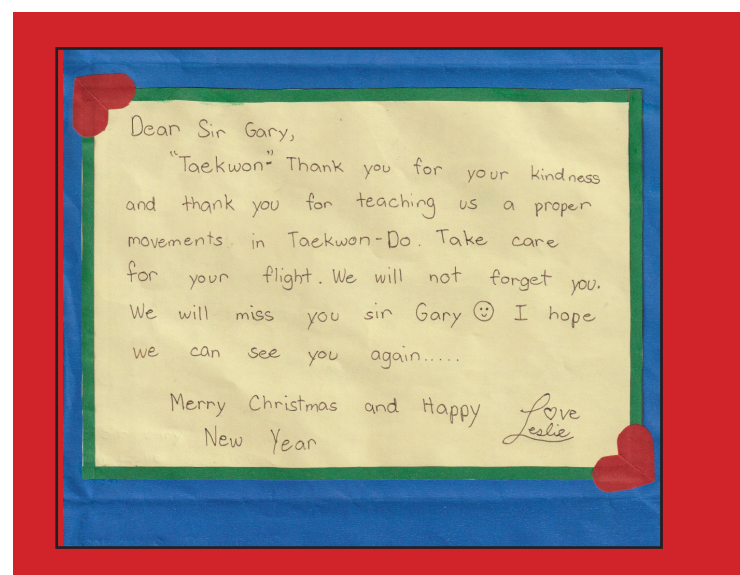 Dear Sir Gary,
"Taekwon-" Thank you for your kindness
and thank you for teaching us a proper
movements in Taekwon-Do. Take care
for your flight. We will not forget you.
We will miss you sir Gary ☺ I hope
we can see you again.....
Merry Christmas and Happy
New Year
Love
Leslie